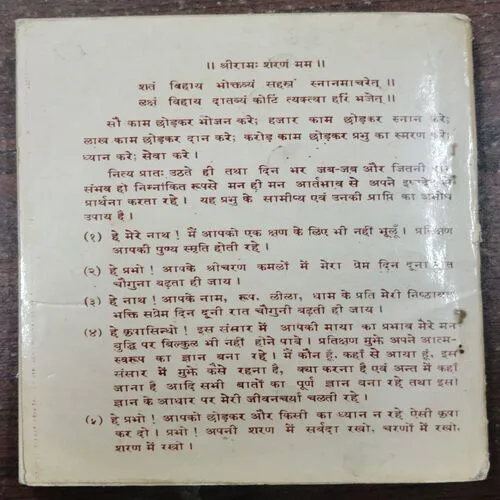 ॥ श्रीरामः शरणं मम ॥
शतं विहाय भोक्तव्यं सहस्रं स्नानमाचरेत् ॥
लक्षं विहाय दातव्यं कोटिं त्यक्त्वा हरिं भजेत् ॥
सौ काम छोड़कर भोजन करे; हजार काम छोड़कर स्नान करे;
लाख काम छोड़कर दान करे; करोड़ काम छोड़कर प्रभु का स्मरण करे;
ध्यान करे; सेवा करे ।
नित्य प्रातः उठते ही तथा दिन भर जब-जब और जितनी
संभव हो निम्नांकित रूपसे मन ही मन आर्तभाव से अपने
प्रार्थना करता रहे । यह प्रभु के सामीप्य एवं उनकी प्राप्ति का अमोघ
उपाय है ।
(१) हे मेरे नाथ ! मैं आपको एक क्षण के लिए भी नहीं भूलूँ । प्रतिक्षण
आपकी पुण्य स्मृति होती रहे ।
(२) हे प्रभो ! आपके श्रीचरण कमलों में मेरा प्रेम दिन दूना रात
चौगुना बढ़ता ही जाय ।
(३) हे नाथ ! आपके नाम, रूप, लीला, धाम के प्रति मेरी
भक्ति सप्रेम दिन दूनी रात चौगुनी बढ़ती ही जाय ।
(४) हे कृपासिन्धो ! इस संसार में आपकी माया का प्रभाव मेरे मन
बुद्धि पर बिल्कुल भी नहीं होने पावे । प्रतिक्षण मुझे अपने आत्म-
स्वरूप का ज्ञान बना रहे । मैं कौन हूँ, कहाँ से आया हूँ, इस
संसार में मुझे कैसे रहना है, क्या करना है एवं अन्त में कहाँ
जाना है आदि सभी बातों का पूर्ण ज्ञान बना रहे तथा इसी
ज्ञान के आधार पर मेरी जीवनचर्या चलती रहे ।
(५) हे प्रभो ! आपको छोड़कर और किसी का ध्यान न रहे ऐसी कृपा
कर दो । प्रभो ! अपनी शरण में सर्वदा रखो, चरणों में रखो,
शरण में रखो ।